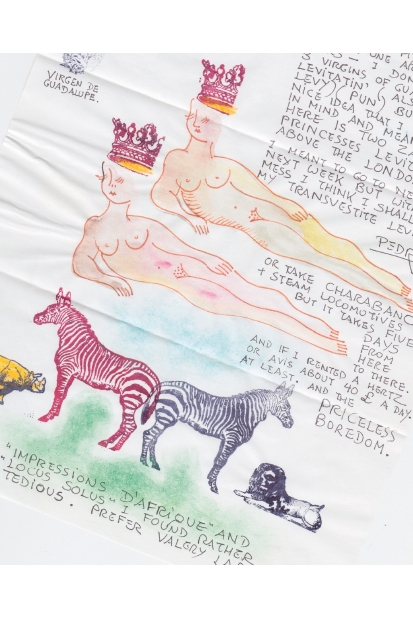 VIRGEN DE
GUADALUPE.
ARE
S — I DON
3 VIRGINS OF GU
LEVITATIN' (ALL
LEVY) (PUN) BU
NICE IDEA THAT I
IN MIND AND MEAN
HERE IS TWO Z
PRINCESSES LEVI
ABOVE THE LONDO
I MEANT TO GO TO NE
NEXT WEEK BUT WITH
MESS I THINK I SHALL
MY TRANSVESTITE LEVI
PEDR
OR TAKE CHARABANC
+ STEAM LOCOMOTIVES
BUT IT TAKES FIVE
DAYS
FROM
HERE
TO THERE.
AND IF I RENTED A HERTZ
OR AVIS ABOUT 40 £ A DAY.
AT LEAST. AND THE
PRICELESS
BOREDOM.
"IMPRESSIONS D'AFRIQUE" AND
"LOCUS SOLUS" I FOUND RATHER
TEDIOUS. PREFER VALERY LAR